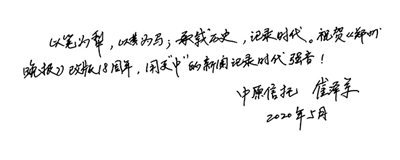 以笔为犁，以梦为马；承载历史，记录时代。祝贺《郑州
晚报》改版18周年，用更"中"的新闻记录时代强音！
中原信托 崔泽军
2020年5月